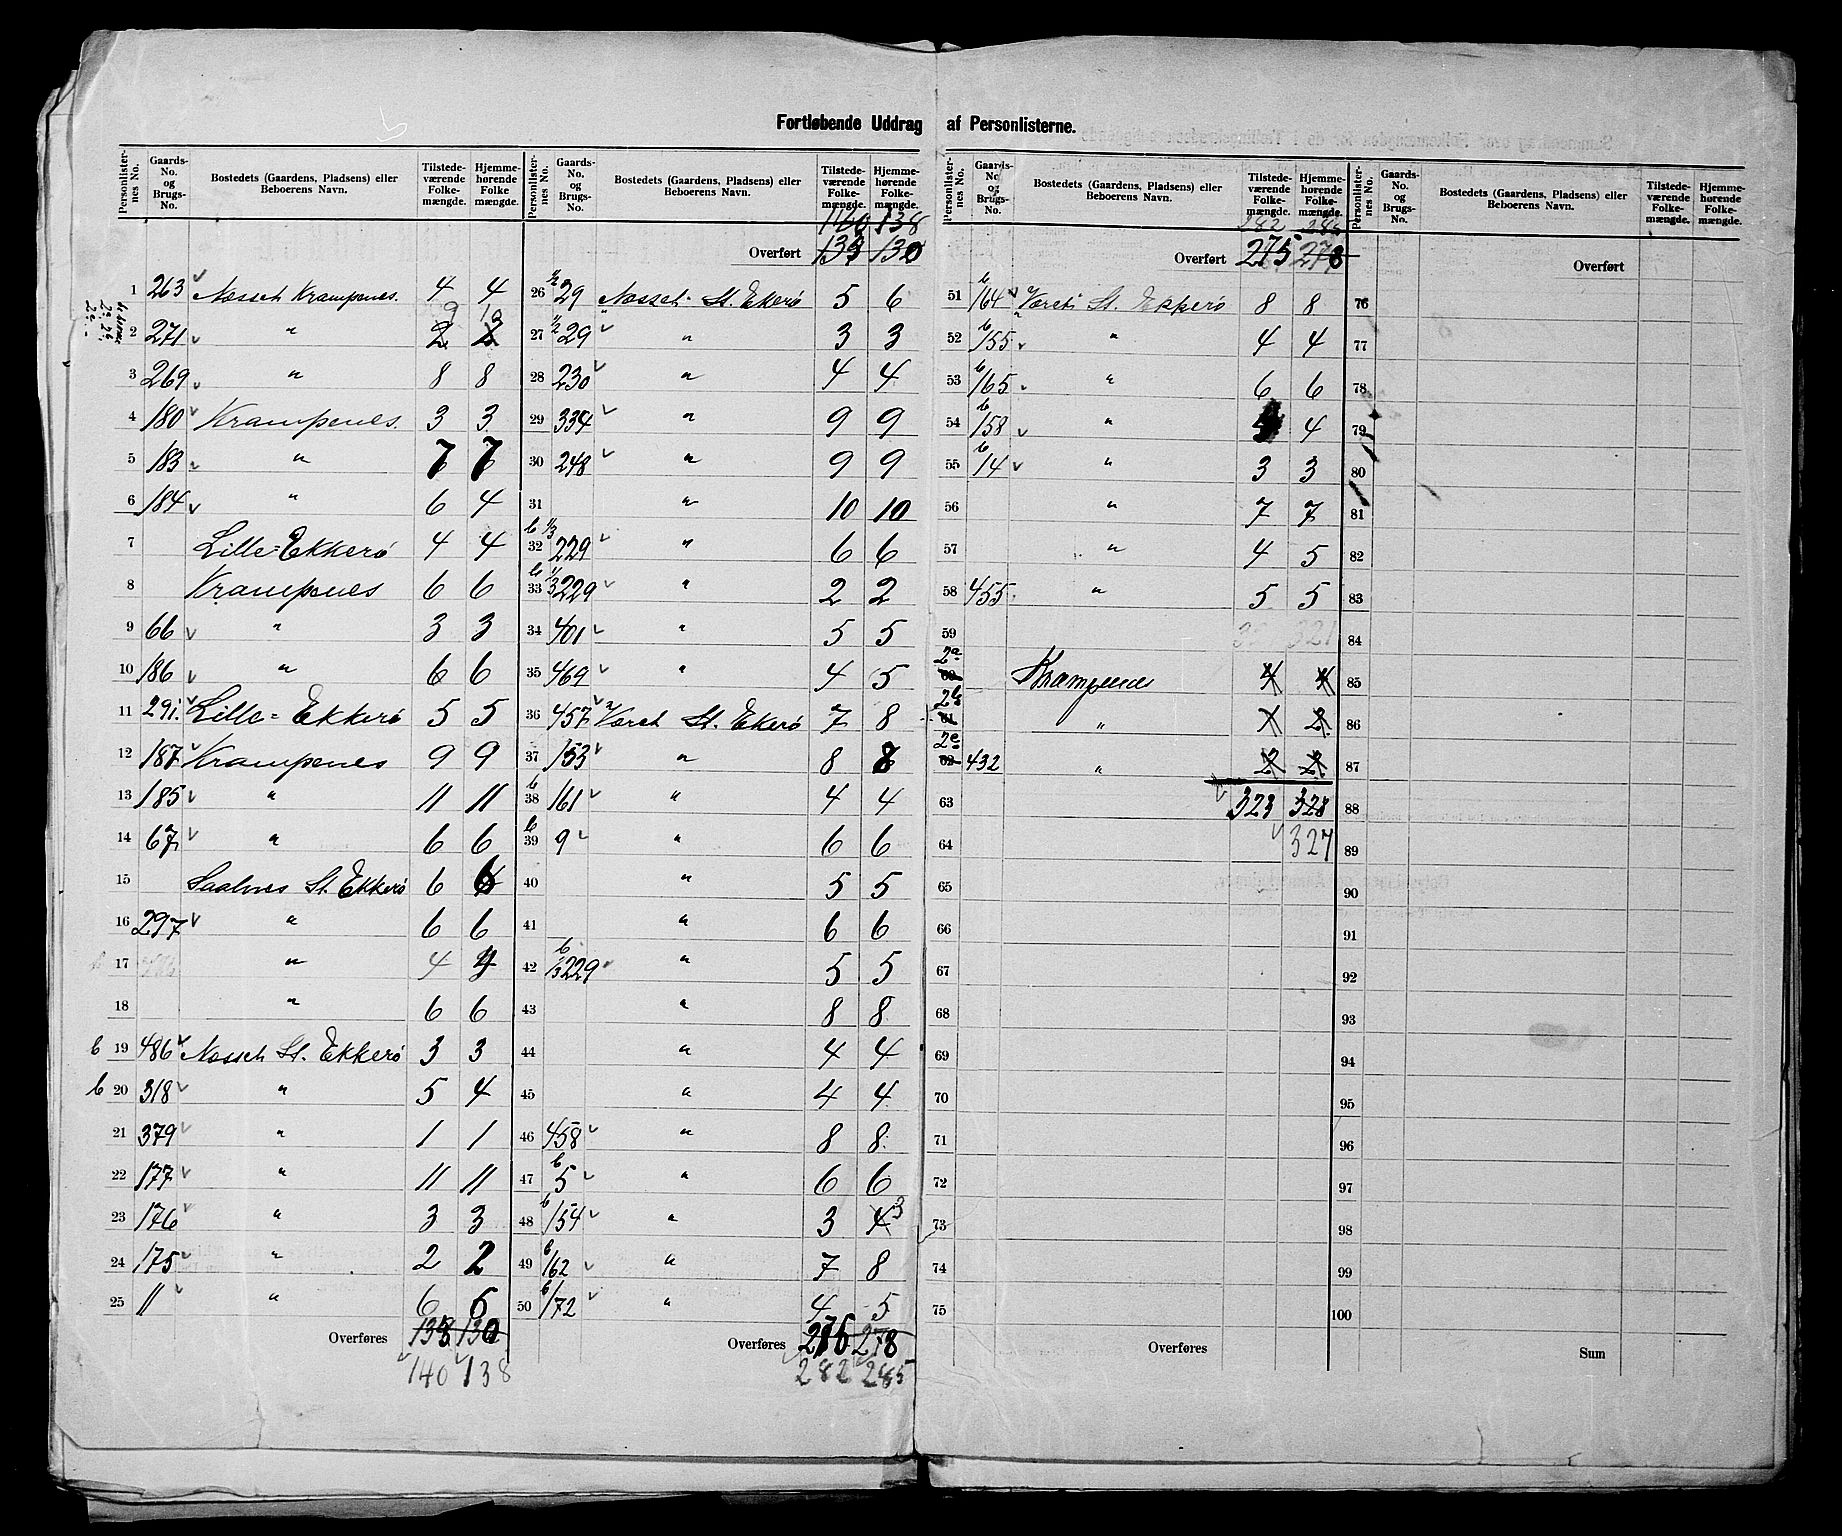 Fortløbende Uddrag af Personlisterne.
Personlister-nes No. | Gaards-No. og Brugs-No. | Bostedets (Gaardens, Pladsens) eller Beboerens Navn. | Tilstede-værende Folke-mængde. | Hjemme-hørende Folke mængde.
1 263 Næsset Krampenes. 4 4
9 10
2 271 " 2 2
3 269 " 8 8
4 180 Krampenes. 3 3
5 183 " 7 7
6 184 " 6 4
7 Lille-Ekkerö 4 4
8 Krampenes 6 6
9 66 " 3 3
10 186 " 6 6
11 291. Lille-Ekkerö 5 5
12 187 Krampenes 9 9
13 185 " 11 11
14 67 " 6 6
15 St. Ekkerö 6 6
16 297 " 6 6
17 " 4 4
18 " 6 6
b 19 486 Næsset St. Ekkerö 3 3
b 20 318 " 5 4
21 379 " 1 1
22 177 " 11 11
23 176 " 3 3
24 175 " 2 2
25 11 " 6 6
Overføres 138 130
140 138
Personlister-nes No. | Gaards-No. og Brugs-No. | Bostedets (Gaardens, Pladsens) eller Beboerens Navn. | Tilstede-værende Folke-mængde. | Hjemme-hørende Folke-mængde.
140 138
Overført 139 130
26 1/2 29 Næsset St. Ekerö 5 6
27 1/2 29 " 3 3
28 230 " 4 4
29 334 " 9 9
30 248 " 9 9
31 " 10 10
32 b 1/3 229 " 6 6
33 b 1/3 229 " 2 2
34 401 " 5 5
35 469 " 4 5
36 457 Været St. Ekerö 7 8
37 153 " 8 8
38 b 161 " 4 4
39 b 9 " 6 6
40 " 5 5
41 " 6 6
42 b 1/3 229 " 5 5
43 " 8 8
44 " 4 4
45 " 4 4
46 458 " 8 8
47 b 5 " 6 6
48 b 154 " 3 4 3
49 b 162 " 7 8
50 b 172 " 4 5
Overføres 275 278
282 285
Personlister-nes No. | Gaards-No. og Brugs-No. | Bostedets (Gaardens, Pladsens) eller Beboerens Navn. | Tilstede-værende Folke-mængde. | Hjemme-hørende Folke-mængde.
282 285
Overført 275 278
51 b 164 Været St. Ekkerö 8 8
52 b 155 " 4 4
53 b 165 " 6 6
54 b 158 " 4
55 b 14 " 3 3
56 " 7 7
57 " 4 5
58 455 " 5 5
59 321
60 2a Krampenes 4 4
61 2b " 1 2
62 2c 432 " 2 2
63 323 328
64 327
65
66
67
68
69
70
71
72
73
74
75
Overføres
Personlister-nes No. | Gaards-No. og Brugs-No. | Bostedets (Gaardens, Pladsens) eller Beboerens Navn. | Tilstede-værende Folke-mængde. | Hjemme-hørende Folke-mængde.
Overført
76
77
78
79
80
81
82
83
84
85
86
87
88
89
90
91
92
93
94
95
96
97
98
99
100
Sum